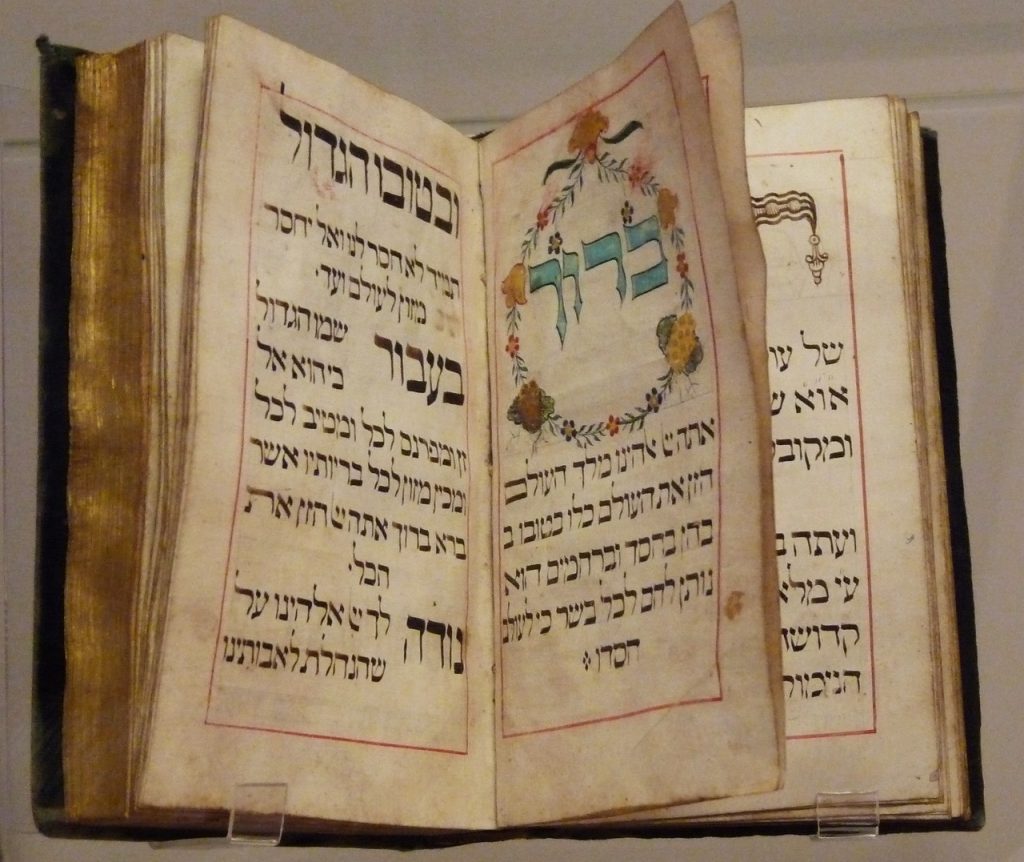 של עו
ועתה ב
ברוך
אתה יי אלהינו מלך העולם
הזן את העולם כלו בטובו ב
בחן בחסד וברחמים הוא
נותן לחם לכל בשר כי לעולם
חסדו
ובטובו הגדול
תמיד לא חסר לנו ואל יחסר
מזון לעולם ועד·
בעבור שמו הגדול
כי הוא אל
זן ומפרנס לכל ומטיב לכל
ומכין מזון לכל בריותיו אשר
ברא ברוך אתה יי הזן את
הכל·
נודה לך יי אלהינו על
שהנחלת לאבותינו